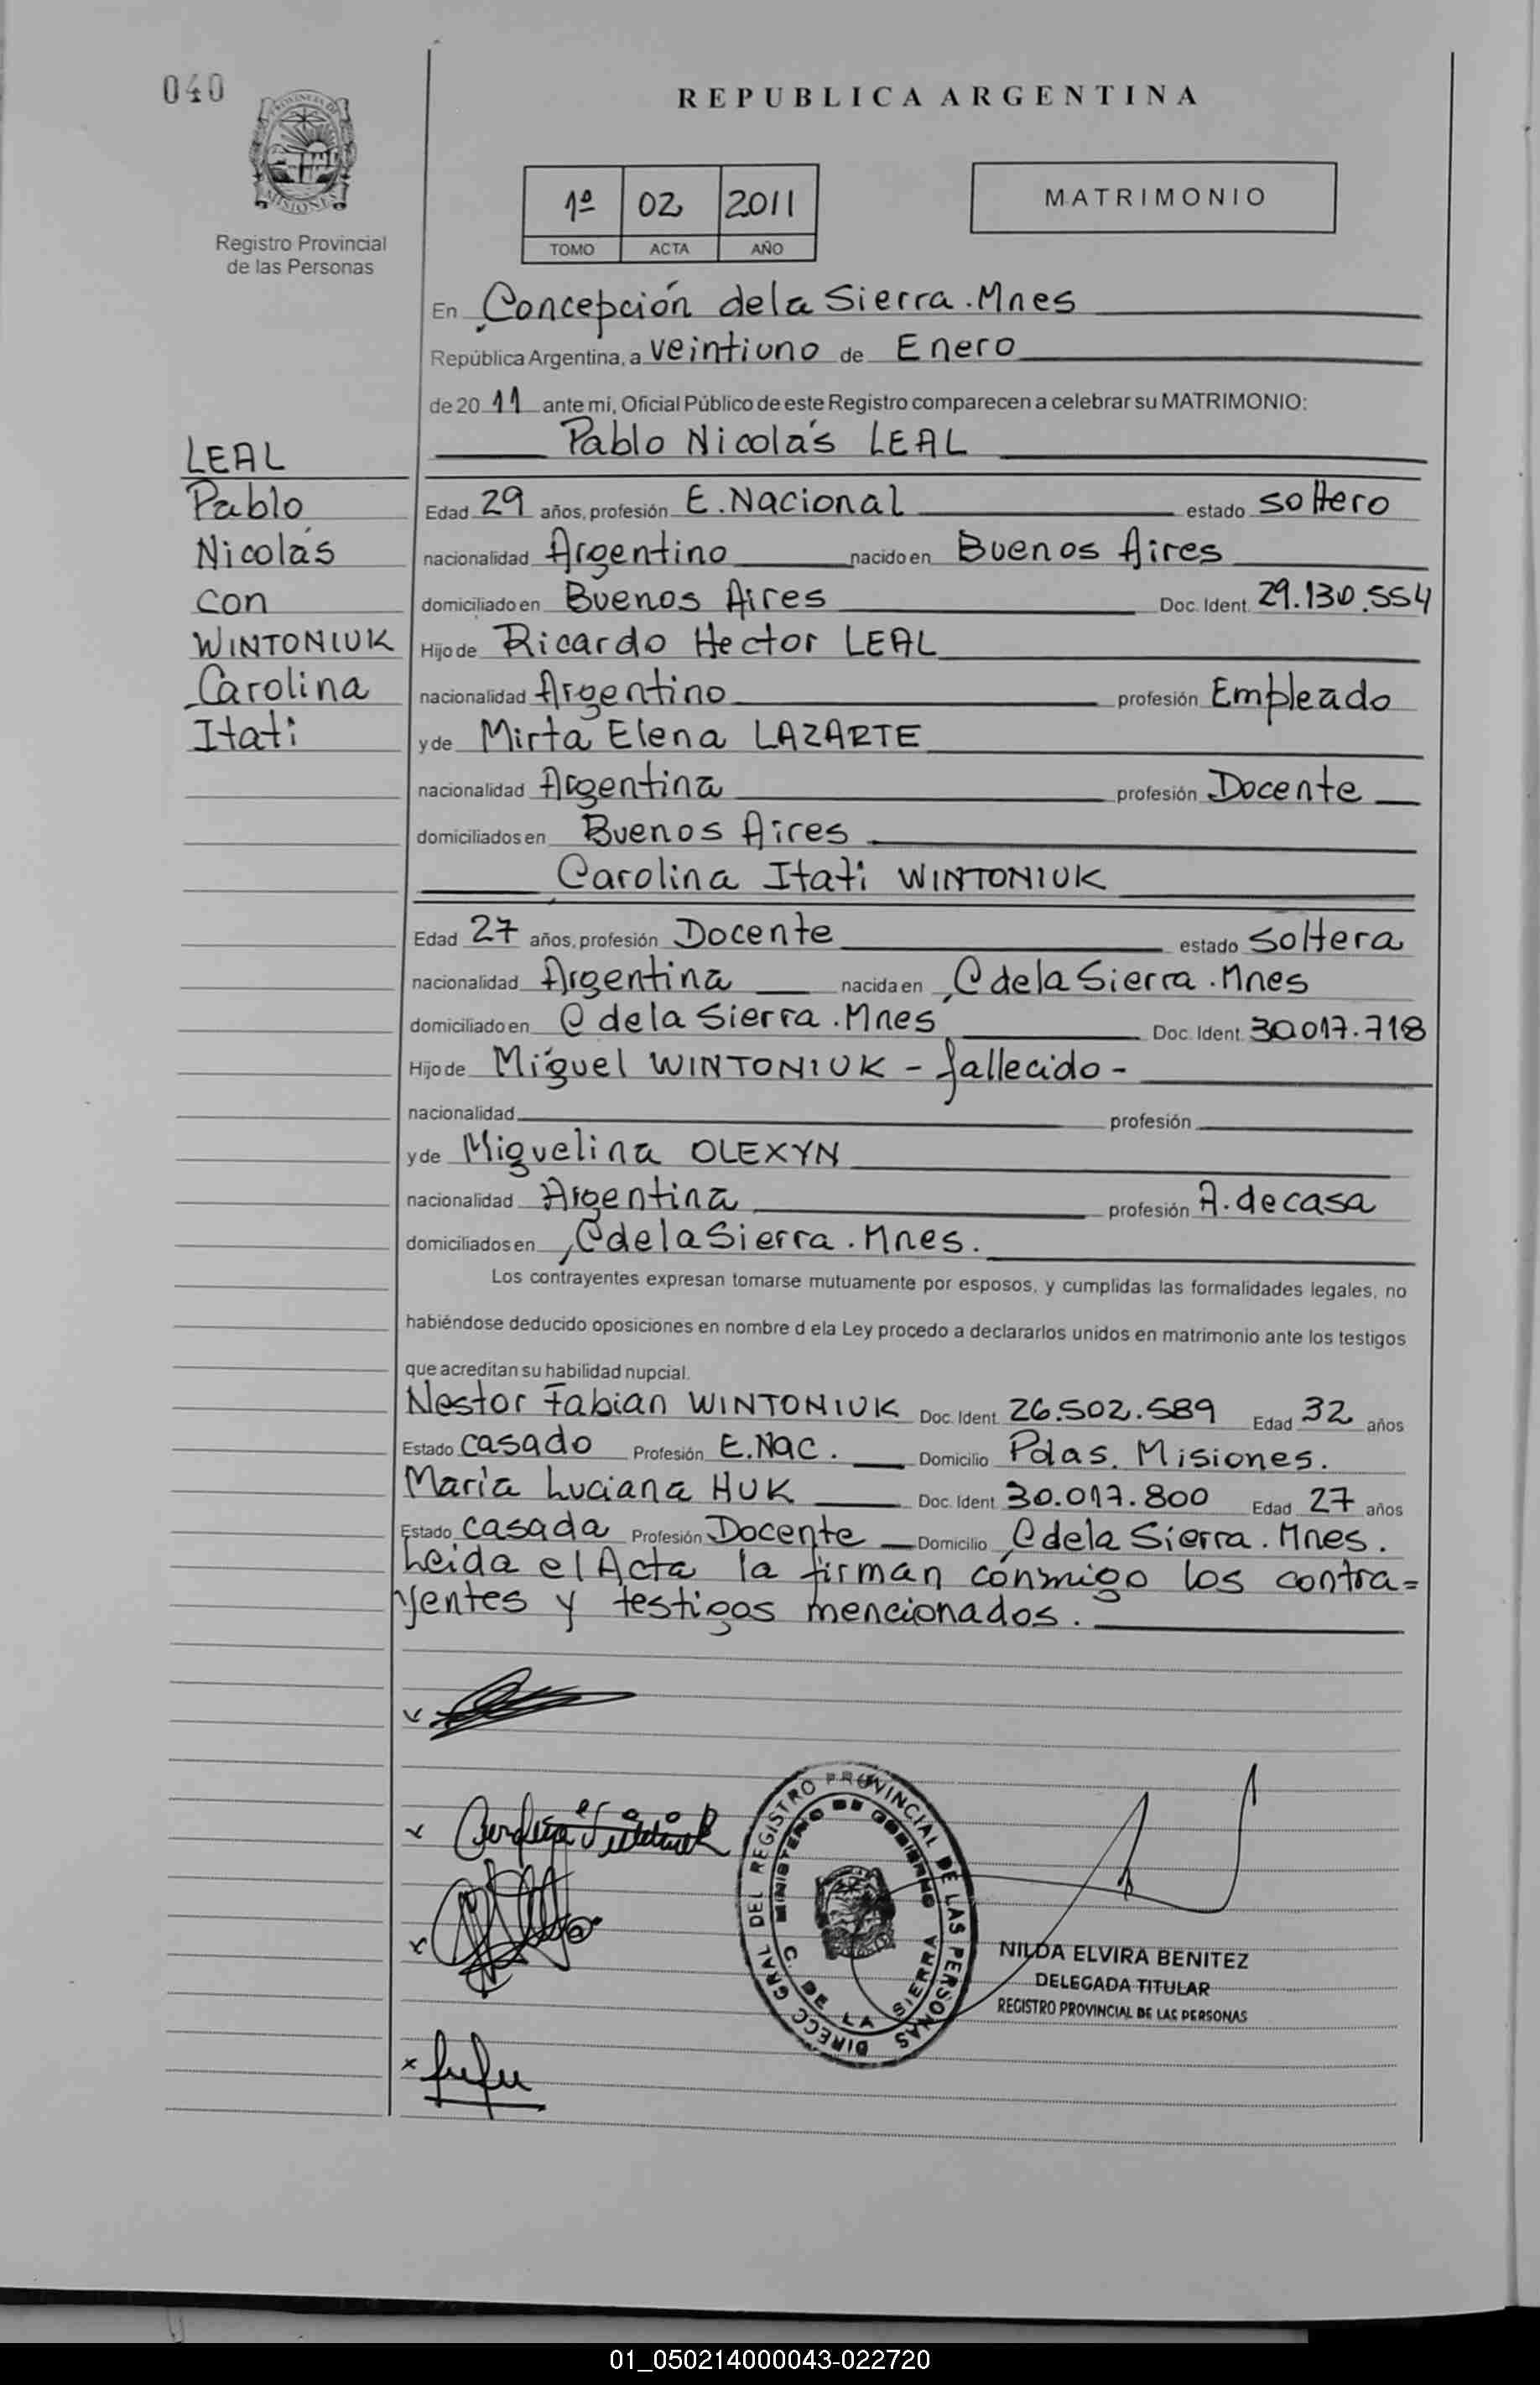 040
REPUBLICA ARGENTINA
PROVINCIA DE
MISIONES
Registro Provincial
de las Personas
1º 02 2011
TOMO ACTA AÑO
MATRIMONIO
En Concepción de la Sierra. Mnes
República Argentina, a veintiuno de Enero
de 20 11 ante mi, Oficial Público de este Registro comparecen a celebrar su MATRIMONIO:
Pablo Nicolás LEAL
LEAL
Pablo
Nicolás
con
WINTONIUK
Carolina
Itati
Edad 29 años, profesión E. Nacional estado soltero
nacionalidad Argentino nacido en Buenos Aires
domiciliado en Buenos Aires Doc. Ident. 29.130.554
Hijo de Ricardo Hector LEAL
nacionalidad Argentino profesión Empleado
y de Mirta Elena LAZARTE
nacionalidad Argentina profesión Docente
domiciliados en Buenos Aires
Carolina Itati WINTONIUK
Edad 27 años, profesión Docente estado Soltera
nacionalidad Argentina nacida en C de la Sierra. Mnes
domiciliado en C de la Sierra. Mnes Doc. Ident. 30.017.718
Hijo de Miguel WINTONIUK - fallecido -
nacionalidad profesión
y de Miguelina OLEXYN
nacionalidad Argentina profesión A. de casa
domiciliados en C de la Sierra. Mnes.
Los contrayentes expresan tomarse mutuamente por esposos, y cumplidas las formalidades legales, no
habiéndose deducido oposiciones en nombre d ela Ley procedo a declararlos unidos en matrimonio ante los testigos
que acreditan su habilidad nupcial.
Nestor Fabian WINTONIUK Doc. Ident. 26.502.589 Edad 32 años
Estado casado Profesión E. Nac. Domicilio Pdas. Misiones.
María Luciana HUK Doc. Ident. 30.017.800 Edad 27 años
Estado casada Profesión Docente Domicilio C de la Sierra. Mnes.
Leida el Acta la firman conmigo los contra=
yentes y testigos mencionados.
DIRECC GRAL DEL REGISTRO PROVINCIAL DE LAS PERSONAS
MINISTERIO DE GOBIERNO
C. DE LA SIERRA
NILDA ELVIRA BENITEZ
DELEGADA TITULAR
REGISTRO PROVINCIAL DE LAS PERSONAS
01_050214000043-022720